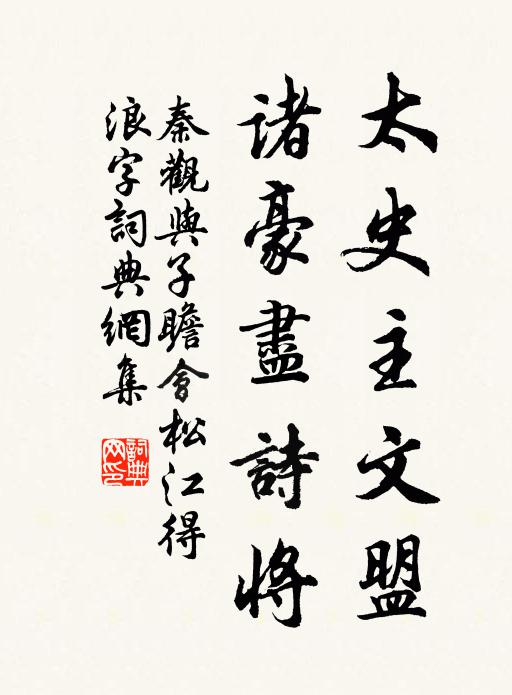 太史主文盟
諸豪盡詩將
秦觀與子瞻會松江得
浪字詞典網集
詞典網印